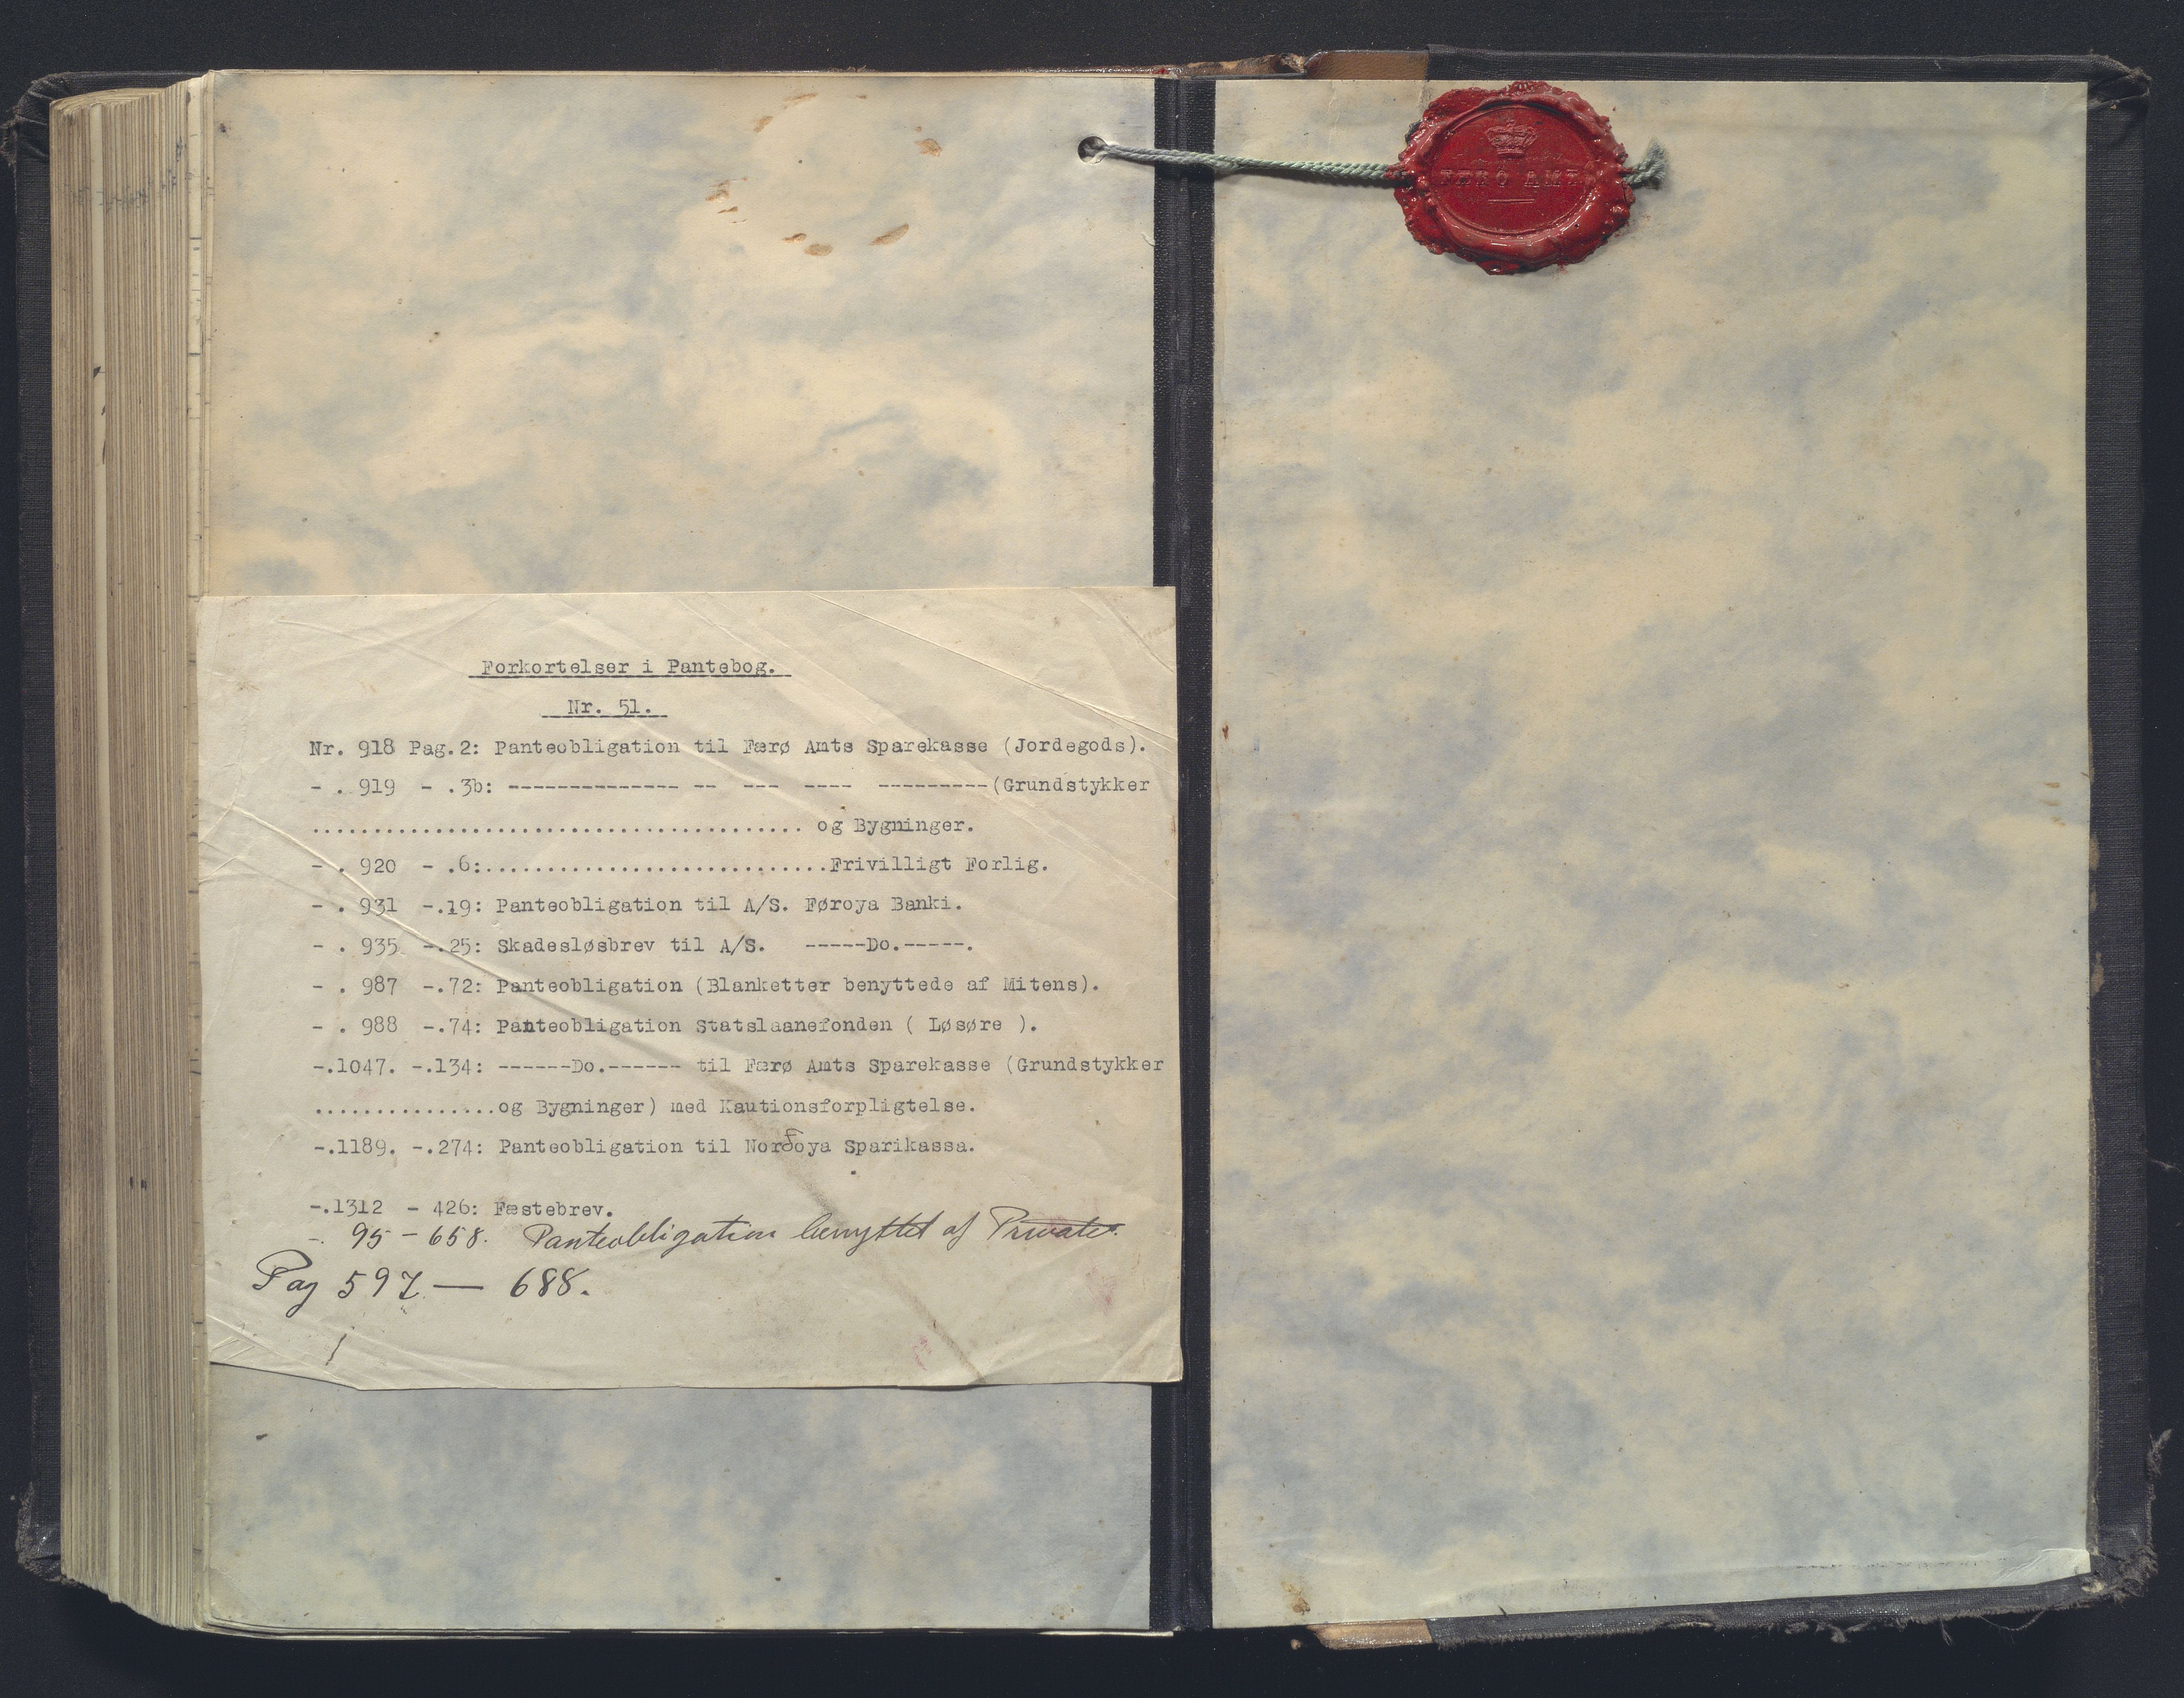 FÆRØ AMT
Forkortelser i Pantebog.
Nr. 51.
Nr. 918 Pag.2: Panteobligation til Færø Amts Sparekasse (Jordegods).
- . 919 - .3b: -------------- -- --- ---- ---------(Grundstykker
........................................ og Bygninger.
- . 920 - .6:............................Frivilligt Forlig.
- . 931 -.19: Panteobligation til A/S. Føroya Banki.
- . 935 -.25: Skadesløsbrev til A/S. -----Do.-----.
- . 987 -.72: Panteobligation (Blanketter benyttede af Mitens).
- . 988 -.74: Panteobligation Statslaanefonden ( Løsøre ).
-.1047. -.134: ------Do.------ til Færø Amts Sparekasse (Grundstykker
...............og Bygninger) med Kautionsforpligtelse.
-.1189. -.274: Panteobligation til Norðoya Sparikassa.
-.1312 - 426: Fæstebrev.
-. 95 - 658. Panteobligation benyttet af Private.
Pag 597 — 688.